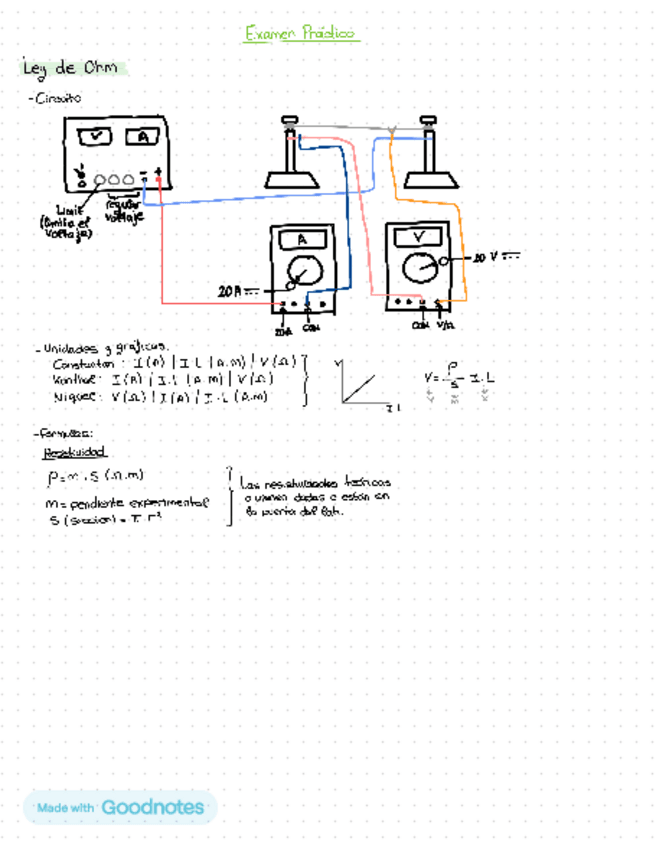 Examen Práctico
Ley de Ohm
- Circuito
V A
- +
Limit
(limita el
voltaje)
regular
voltaje
A
V
20A
20 V
20A COM
COM V/Ω
- Unidades y gráficas:
Constantan: I (A) | I.L (A.m) | V (Ω)
Kanthal: I (A) | I.L (A.m) | V (Ω)
Niquel: V (Ω) | I (A) | I.L (A.m)
V
I.L
V = ρ/s · I.L
- Formulas:
Resistividad
ρ = m . S (Ω.m)
m = pendiente experimental
S (seccion) = π . r²
Las resistividades teóricas
o vienen dadas o están en
la puerta del lab.
Made with Goodnotes